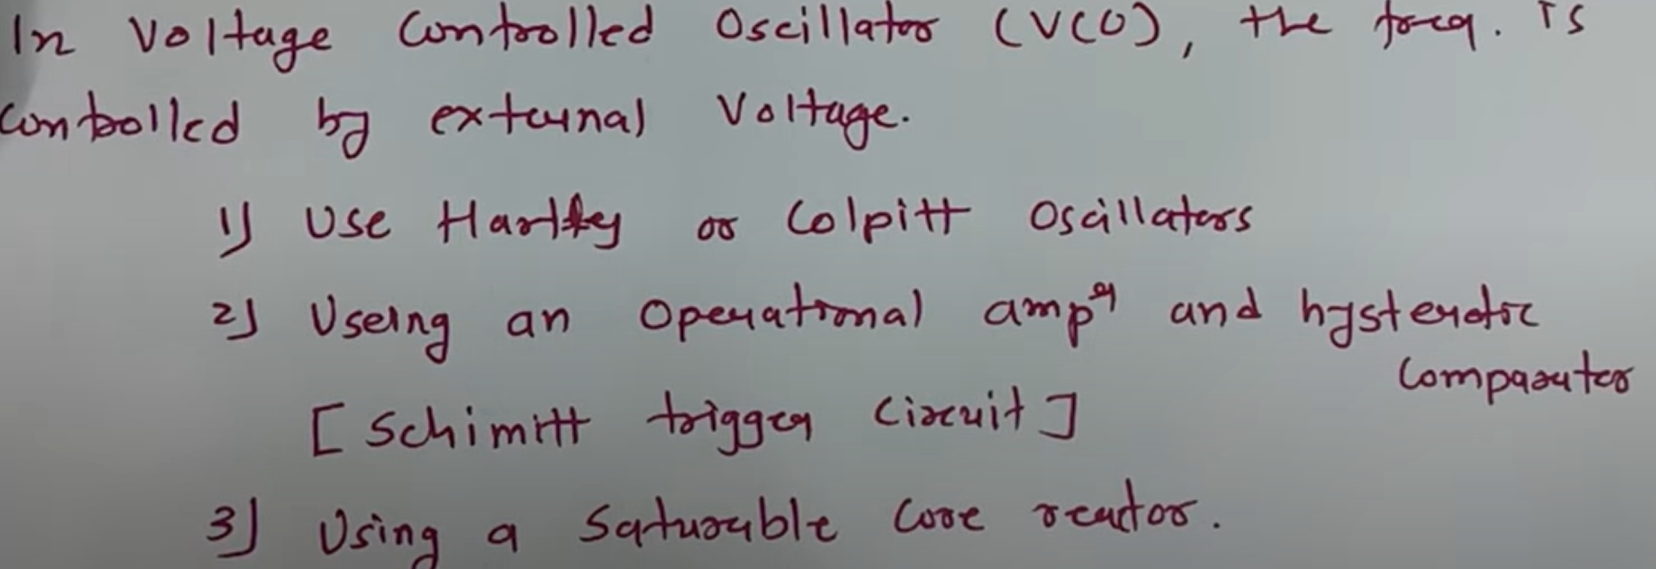 In Voltage Controlled Oscillator (VCO), the freq. is
controlled by external Voltage.
1) Use Hartley or Colpitt Oscillators
2) Useing an Operational amp^er and hysteretic
Comparater
[Schimitt trigger circuit]
3) Using a Saturable Core reactor.